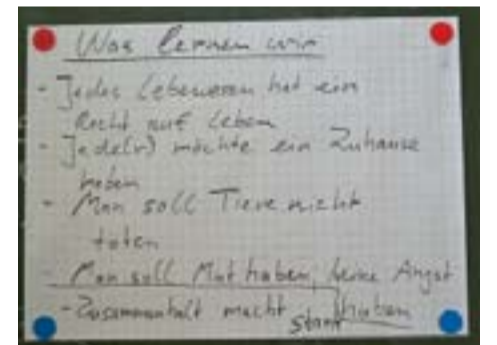 Was lernen wir
- Jedes Lebewesen hat ein
Recht auf Leben
- Jede(r) möchte ein Zuhause
haben
- Man soll Tiere nicht
töten
- Man soll Mut haben, keine Angst
haben
- Zusammenhalt macht stark